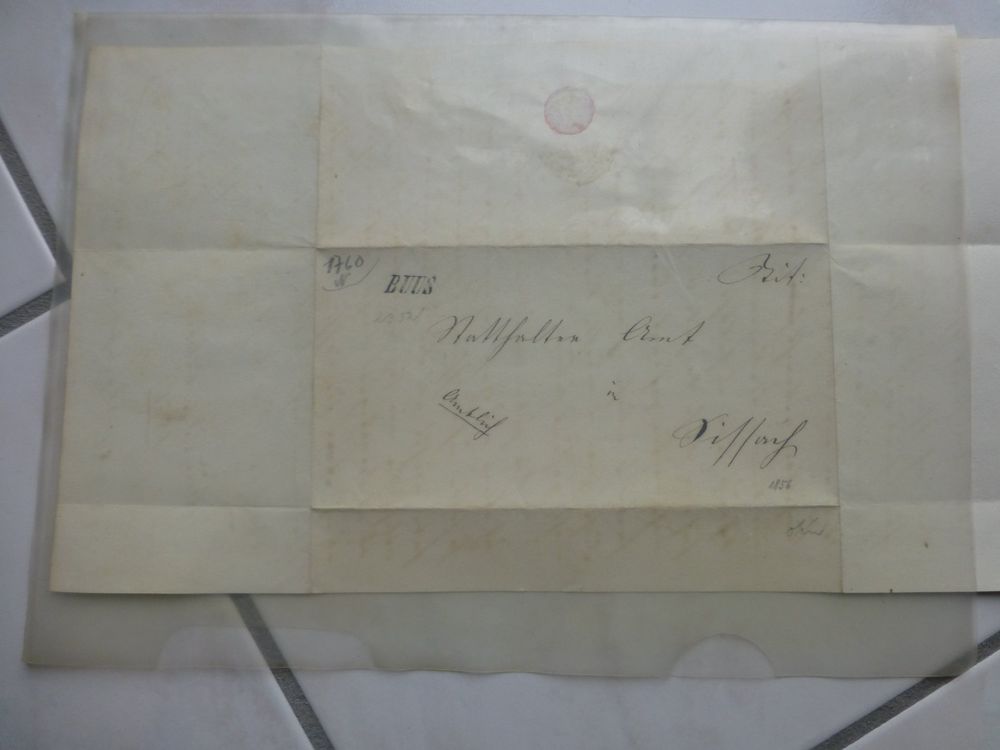 1760
BUUS
Tit:
Statthalter Amt
in
Amtlich
Sissach
1856